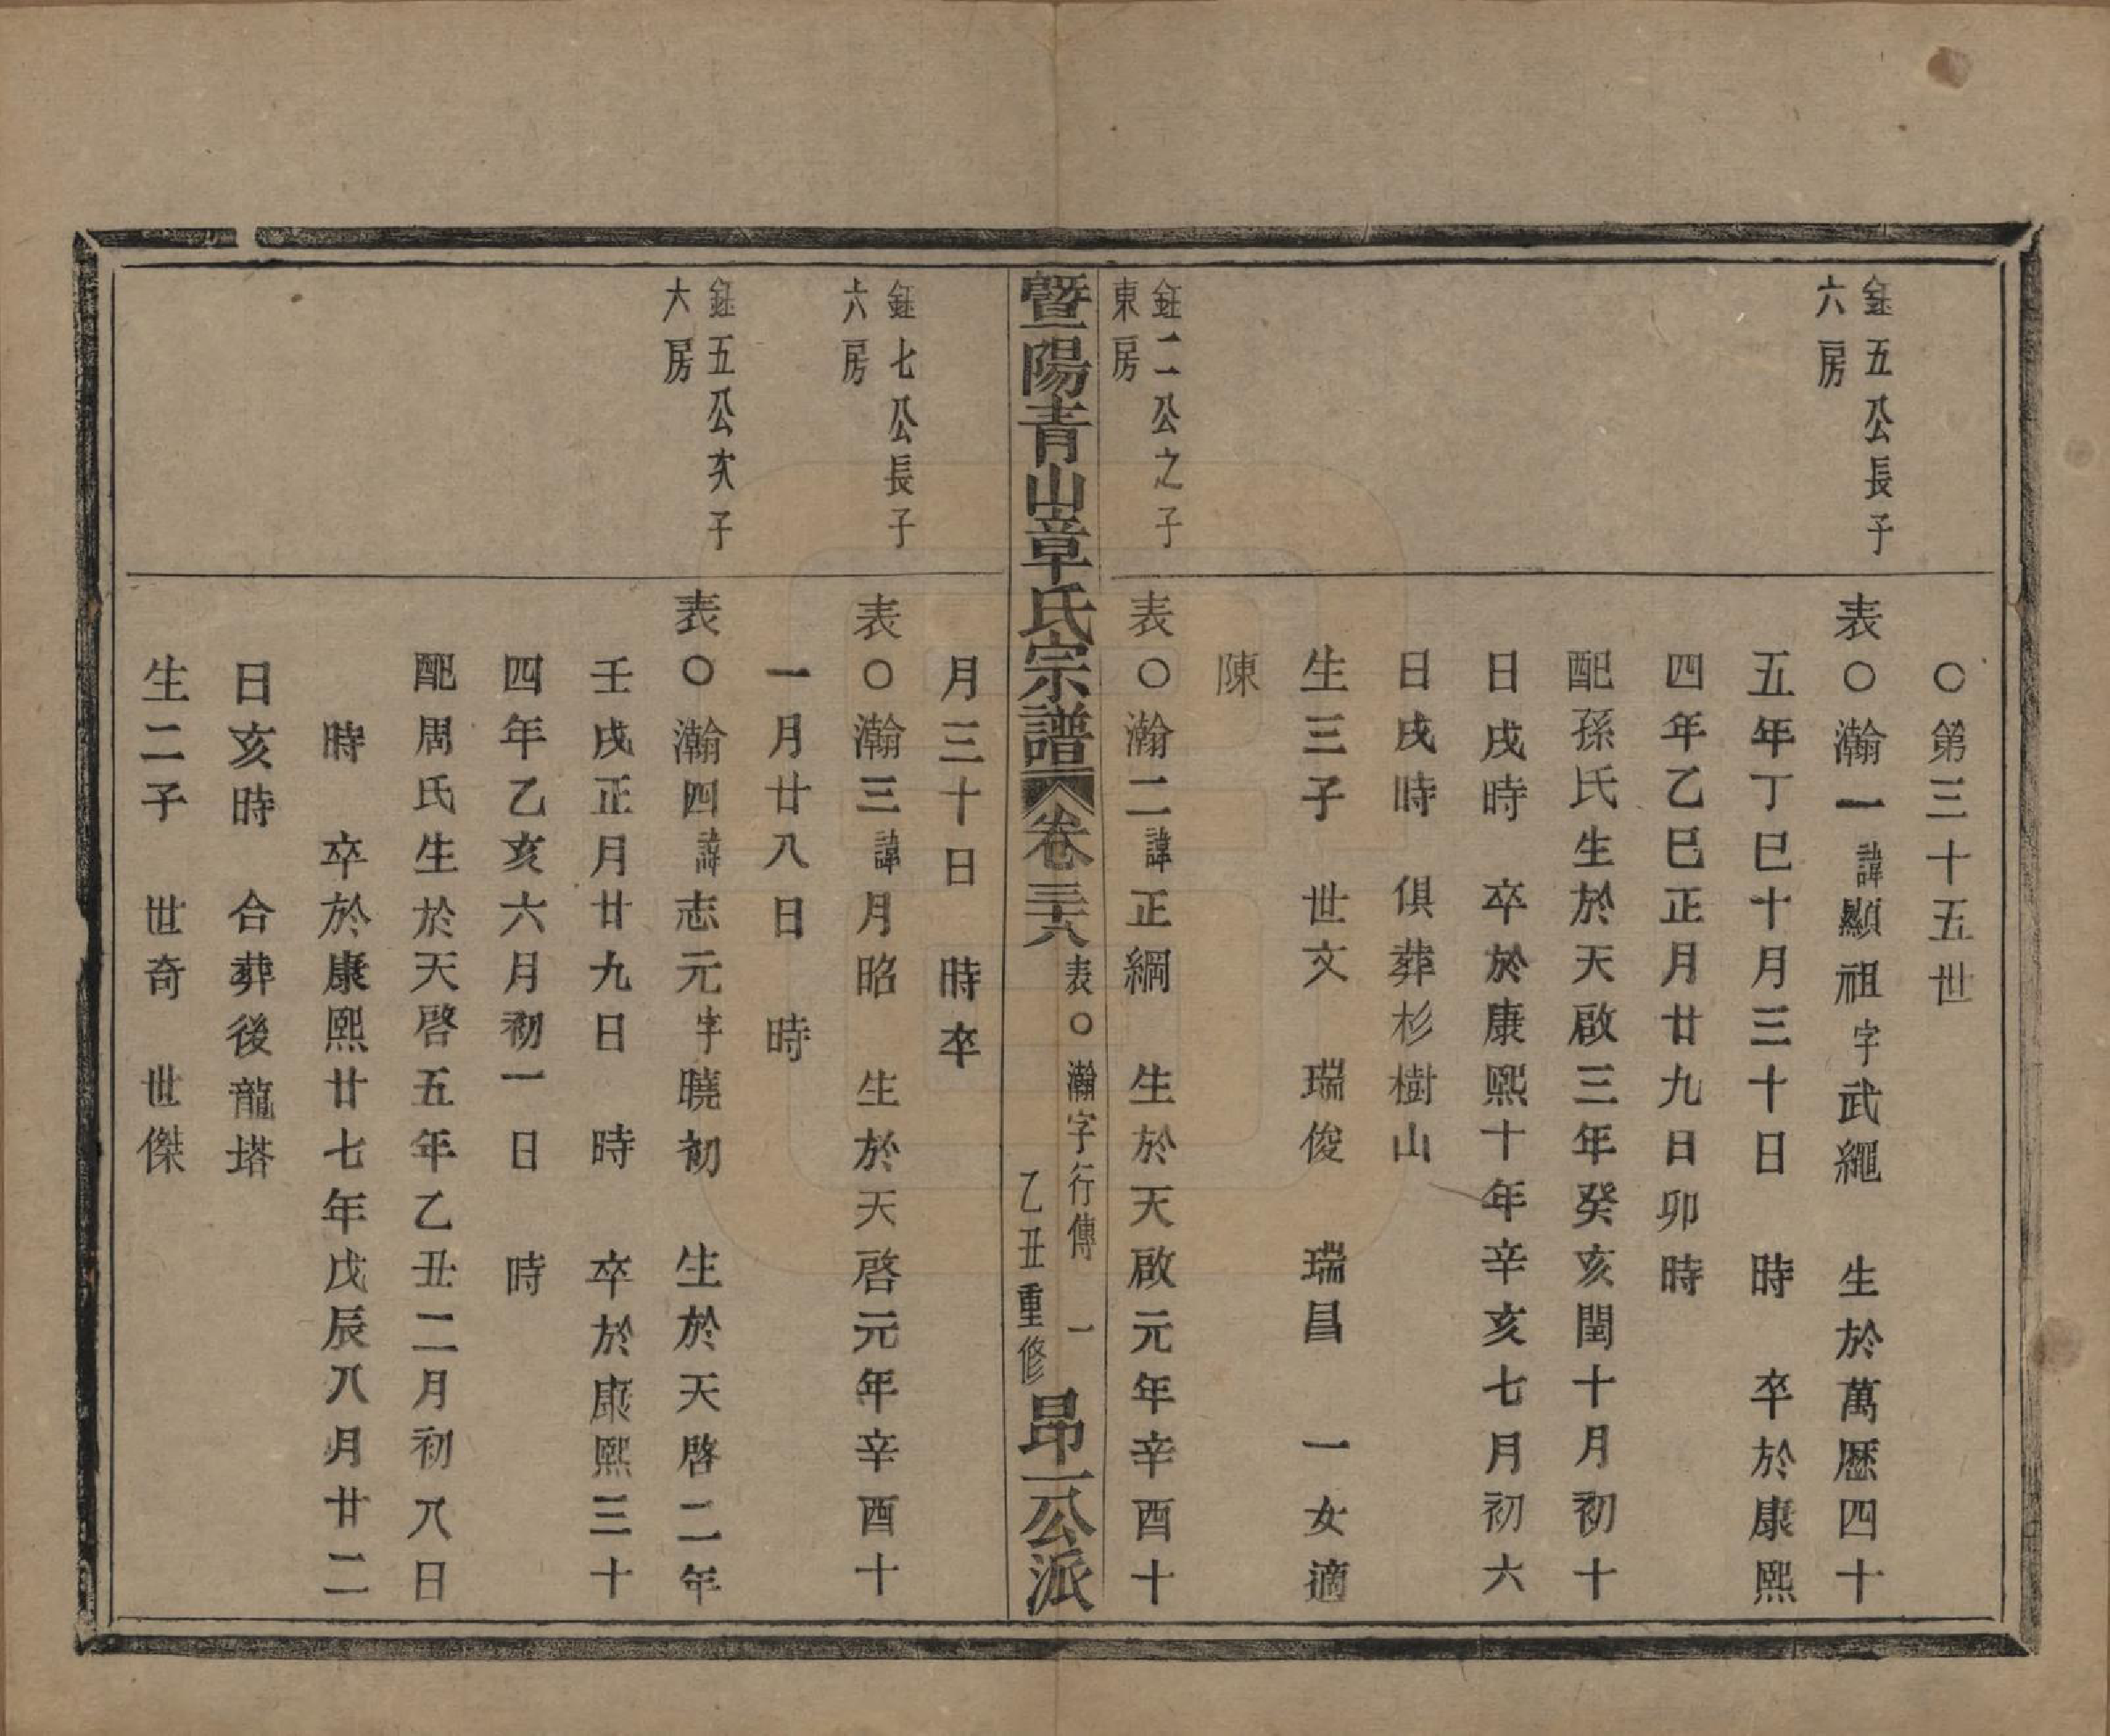 〇第三十五世
鈺五公長子
六房
表〇瀚一諱顯祖字武繩　生於萬歷四十
五年丁巳十月三十日　時　卒於康熙
四年乙巳正月廿九日卯時
配孫氏生於天啟三年癸亥閏十月初十
日戌時　卒於康熙十年辛亥七月初六
日戌時　俱葬杉樹山
生三子　世文　瑞俊　瑞昌　一女適
陳
鈺二公之子
東房
表〇瀚二諱正綱　生於天啟元年辛酉十
暨陽青山章氏宗譜　卷三十六　表〇瀚字行傳　一　乙丑重修　昂一公派
月三十日　時卒
鈺七公長子
六房
表〇瀚三諱月昭　生於天啓元年辛酉十
一月廿八日　時
鈺五公次子
大房
表〇瀚四諱志元字曉初　生於天啓二年
壬戌正月廿九日　時　卒於康熙三十
四年乙亥六月初一日　時
配周氏生於天啓五年乙丑二月初八日
時　卒於康熙廿七年戊辰八月廿二
日亥時　合葬後龍塔
生二子　世奇　世傑